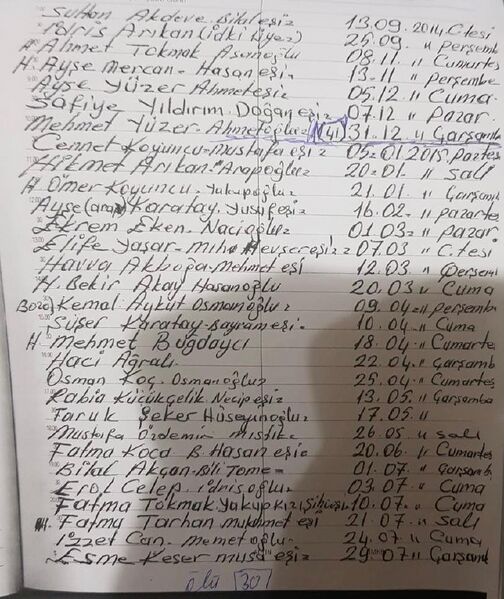 Sultan Akdeve. Bilal eşi 13.09.2014 C.tesi
İdris Arıkan (idki Liyez) 25.09. " perşemb
H. Ahmet Tokmak Asımoğlu 08.11 " Cumartes
H. Ayşe Mercan. Hasan eşi 13.11 " perşembe
Ayşe Yüzer Ahmet eşi 05.12 " Cuma
Safiye Yıldırım. Doğan eşi 07.12 " Pazar.
Mehmet Yüzer. Ahmetoğlu (41) 31.12. " Çarşamba
Cennet Koyuncu-mustafa eşi 05-01 2015. pazrtes
Hikmet Arıkan. Arapoğlu 20-01. " Salı
H. Ömer Koyuncu. Yakupoğlu 21.01. " Çarşamb
Ayşe (ara) Karatay. Yusuf eşi 16.02. " pazarte
Ekrem Eken. Nacioğlu 01.03 " Pazar
Elife Yaşar-Mih 07.03 " C.tesi
Havva Akbuğa-Mehmet eşi 12.03 " Perşemi
H. Bekir Akay Hasanoğlu 20.03 " Cuma
Kemal Aykut Osmanoğlu 09.04 " perşemb
Süşer Karatay-Bayram eşi. 10.04 " Cuma
H. Mehmet Buğdaycı 18.04 " Cumarte
Haci Ağralı 22.04. " Çarşamb
Osman Koç. Osmanoğlu 25.04 " Cumartes
Rabia Küçükçelik. Necip eşi 13.05. " Çarşamba
Faruk Şeker Hüseyinoğlu 17.05 "
Mustafa Özdemir mistik. 26.05 " Salı
Fatma Koca B. Hasan eşi 20.06 " Cumartes
Bilal Akçan-Bili Tome 01.07. " Çarşamb
Erol Celep. idrisoğlu 03.07 " Cuma
Fatma Tokmak. Yakup kızı, 10.07. " Cuma
H. Fatma Tarhan. Muhammet eşi 21.07 " Salı
İzzet Can. Memetoğlu 24.07 " Cuma
Esme Keser musa eşi 29.07 " Çarşamb
ölü 30